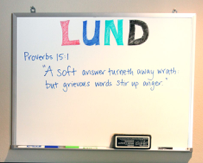 LUND
Proverbs 15:1
"A soft answer turneth away wrath
but grievous words stir up anger."